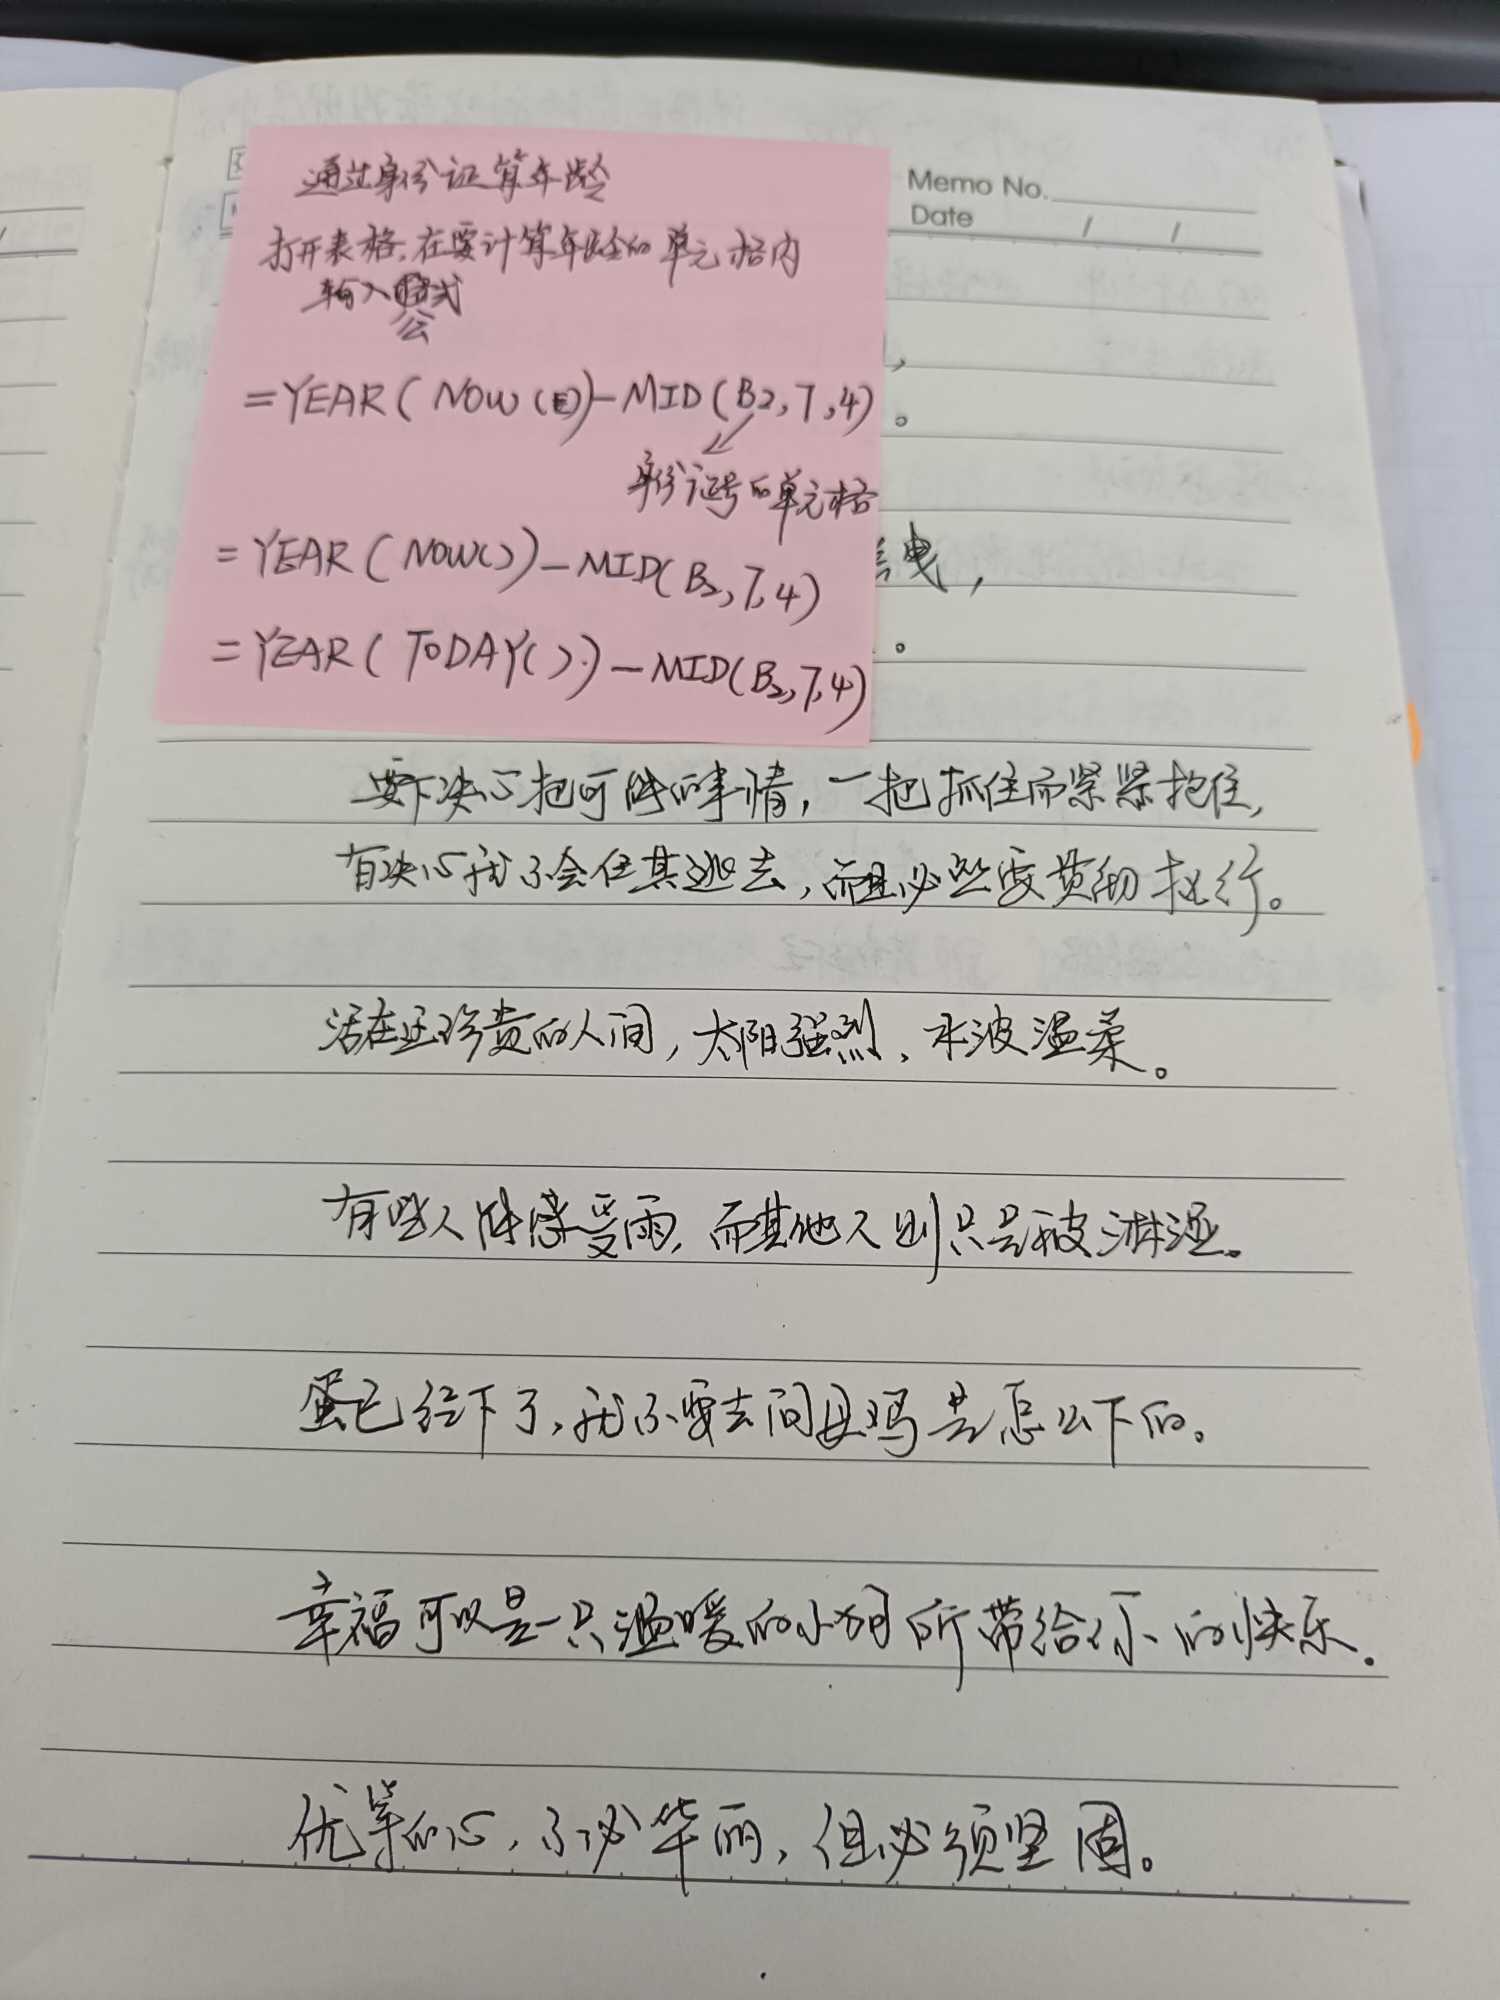 通过身份证算年龄
打开表格,在要计算年龄的单元格内
输入公式
=YEAR(NOW())-MID(B2,7,4)。
身份证号的单元格
=YEAR(NOW())-MID(B2,7,4)
=YEAR(TODAY())-MID(B2,7,4)
Memo No.
Date / /
曳,
。
要下决心把可能的事情,一把抓住而紧紧抱住,
有决心就不会任其逃去,而且必然要贯彻执行。
活在这珍贵的人间,太阳强烈,水波温柔。
有些人能感受雨,而其他人则只是被淋湿。
蛋已经下了,就不要去问母鸡是怎么下的。
幸福可以是一只温暖的小狗所带给你的快乐.
优等的心,不必华丽,但必须坚固。